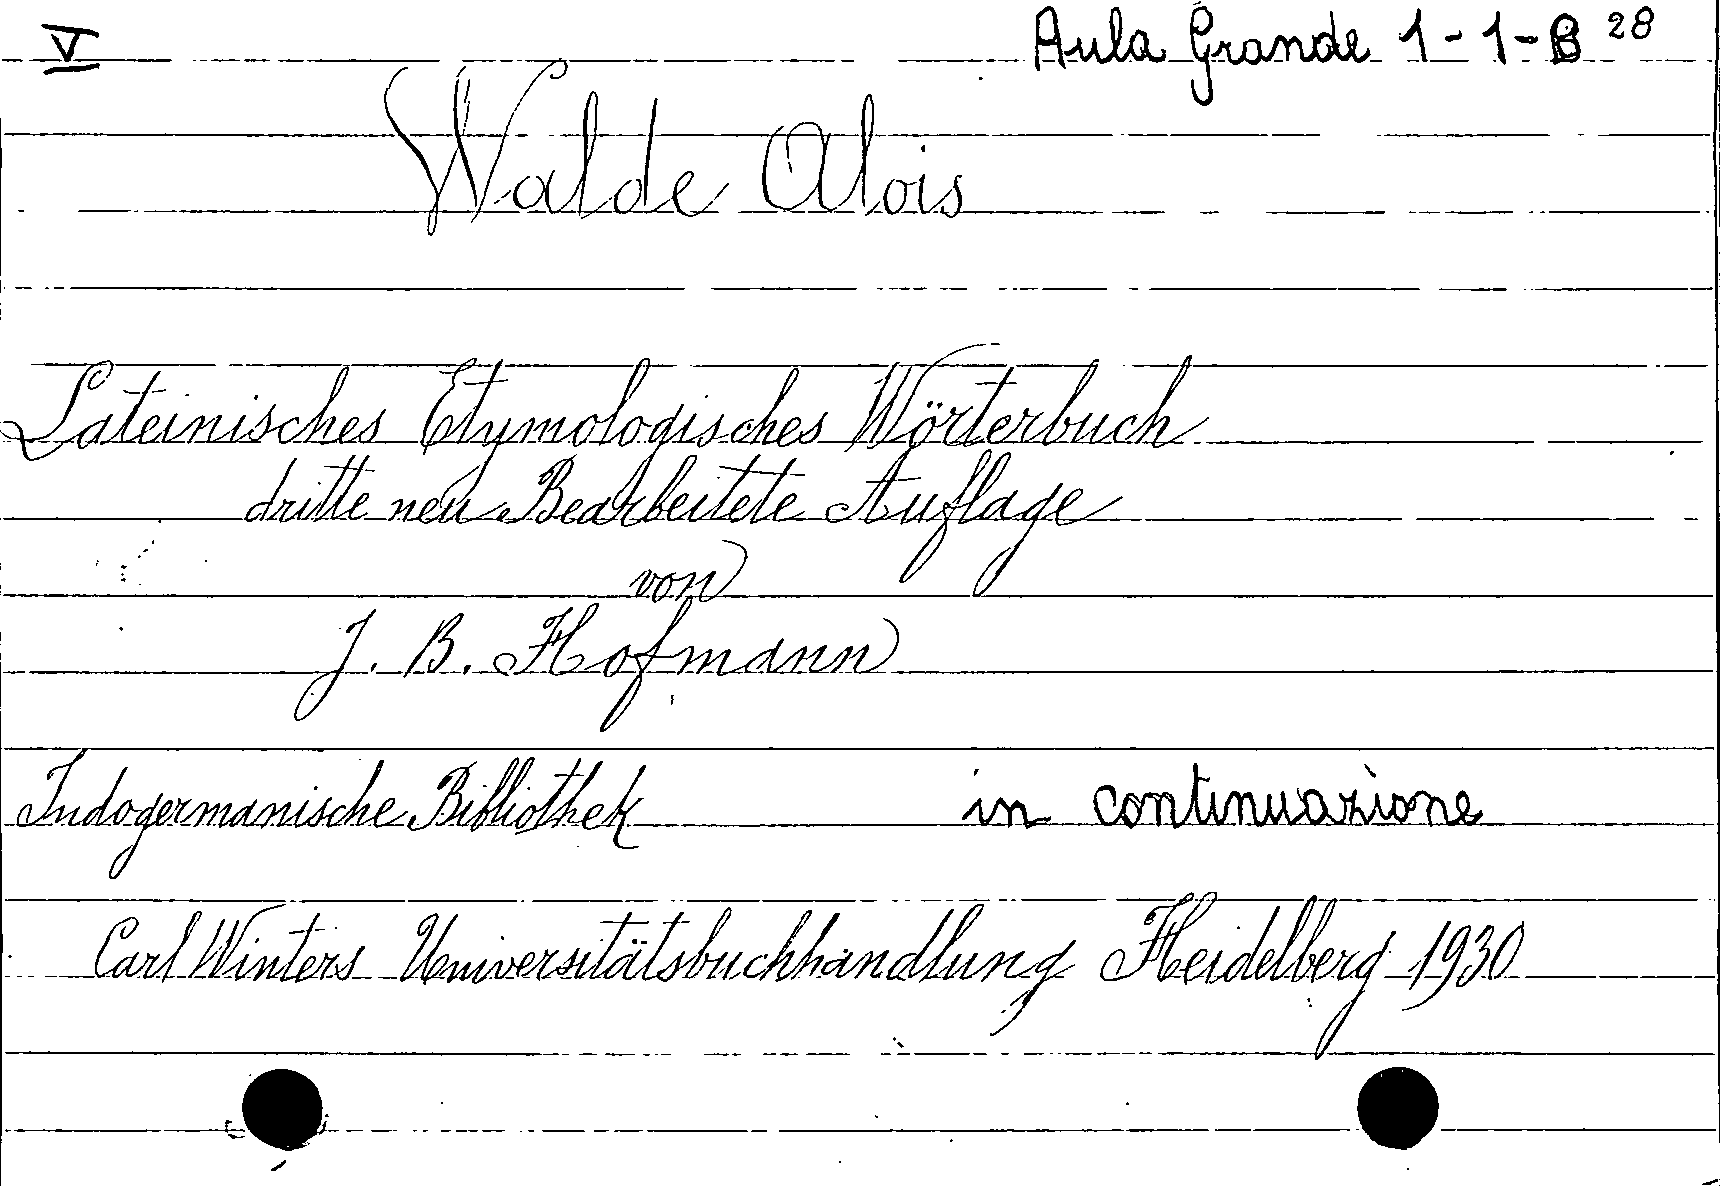 V Aula Grande 1-1-B 28
Walde Alois
Lateinisches Etymologisches Wörterbuch
dritte neu Bearbeitete Auflage
von
J. B. Hofmann
Indogermanische Bibliothek in continuazione
Carl Winters Universitätsbuchhandlung Heidelberg 1930